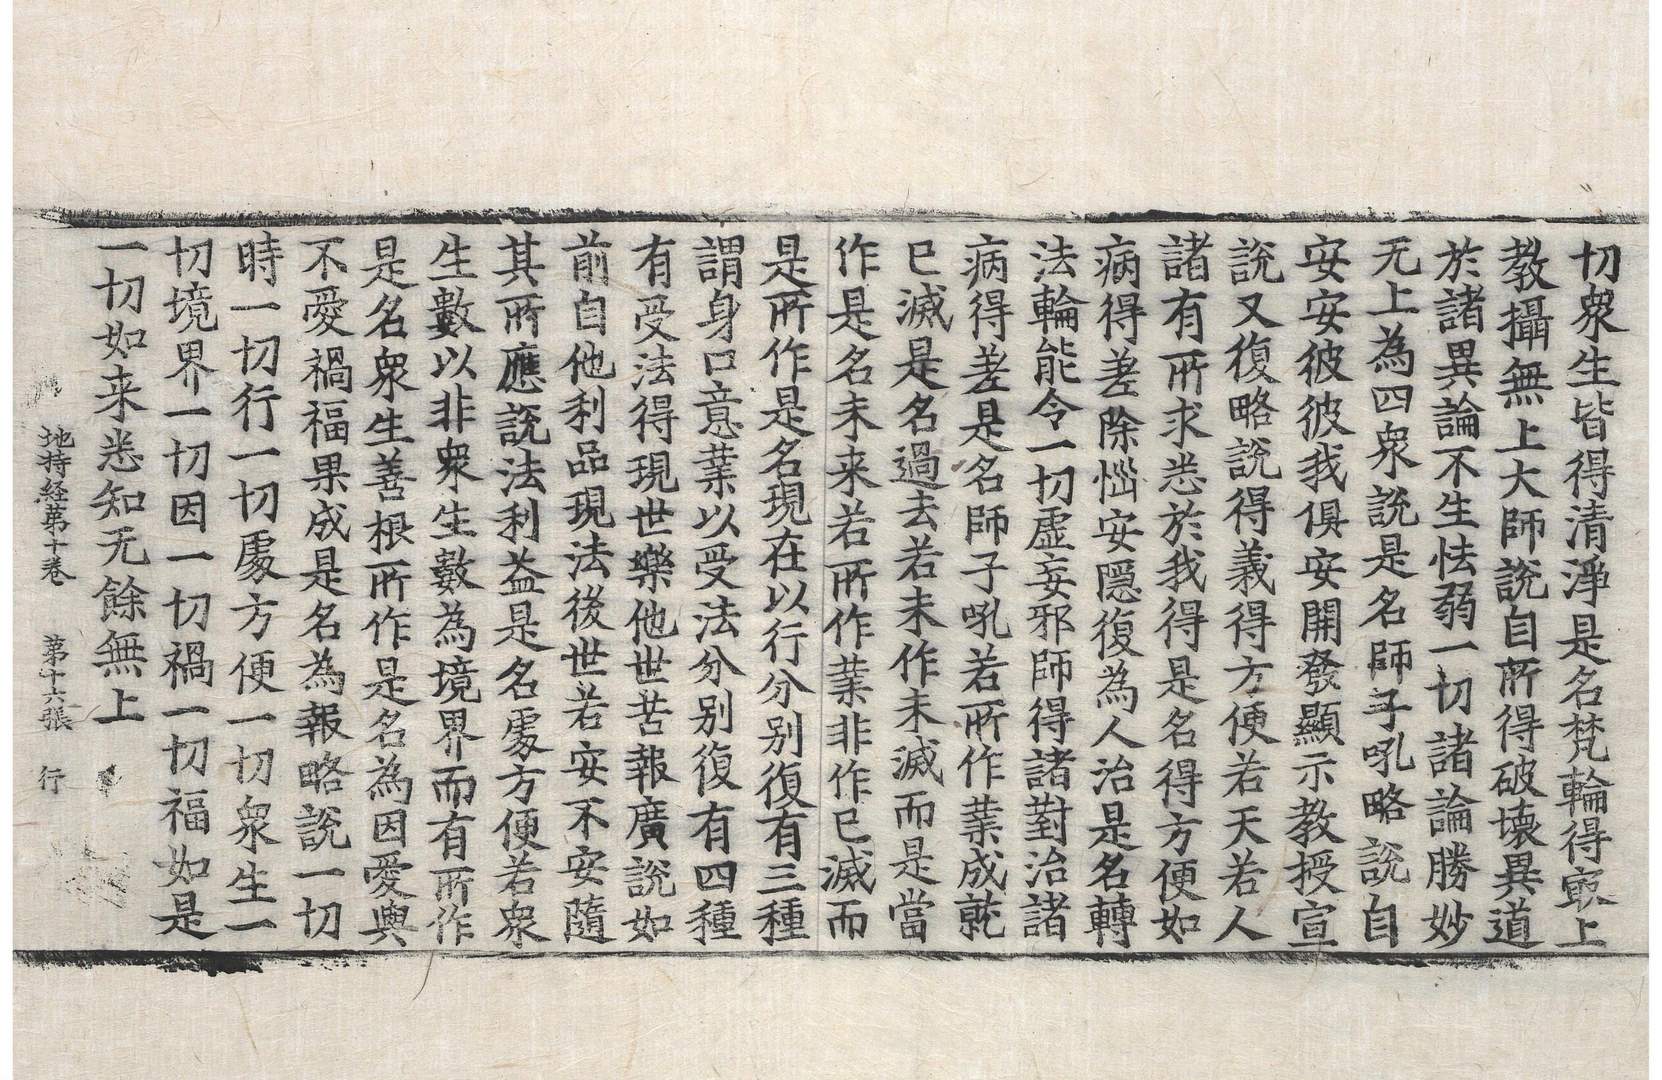 切衆生皆得清淨是名梵輪得冣上
教攝無上大師說自所得破壞異道
於諸異論不生怯弱一切諸論勝妙
无上為四衆說是名師子吼略說自
安安彼彼我俱安開發顯示教授宣
說又復略說得義得方便若天若人
諸有所求悉於我得是名得方便如
病得差除惱安隱復為人治是名轉
法輪能令一切虛妄邪師得諸對治諸
病得差是名師子吼若所作業成就
已滅是名過去若未作未滅而是當
作是名未来若所作業非作已滅而
是所作是名現在以行分別復有三種
謂身口意業以受法分別復有四種
有受法得現世樂他世苦報廣說如
前自他利品現法後世若安不安隨
其所應說法利益是名處方便若衆
生數以非衆生數為境界而有所作
是名衆生善根所作是名為因愛與
不愛禍福果成是名為報略說一切
時一切行一切處方便一切衆生一
切境界一切因一切禍一切福如是
一切如来悉知无餘無上
地持経第十卷　第十六張　行